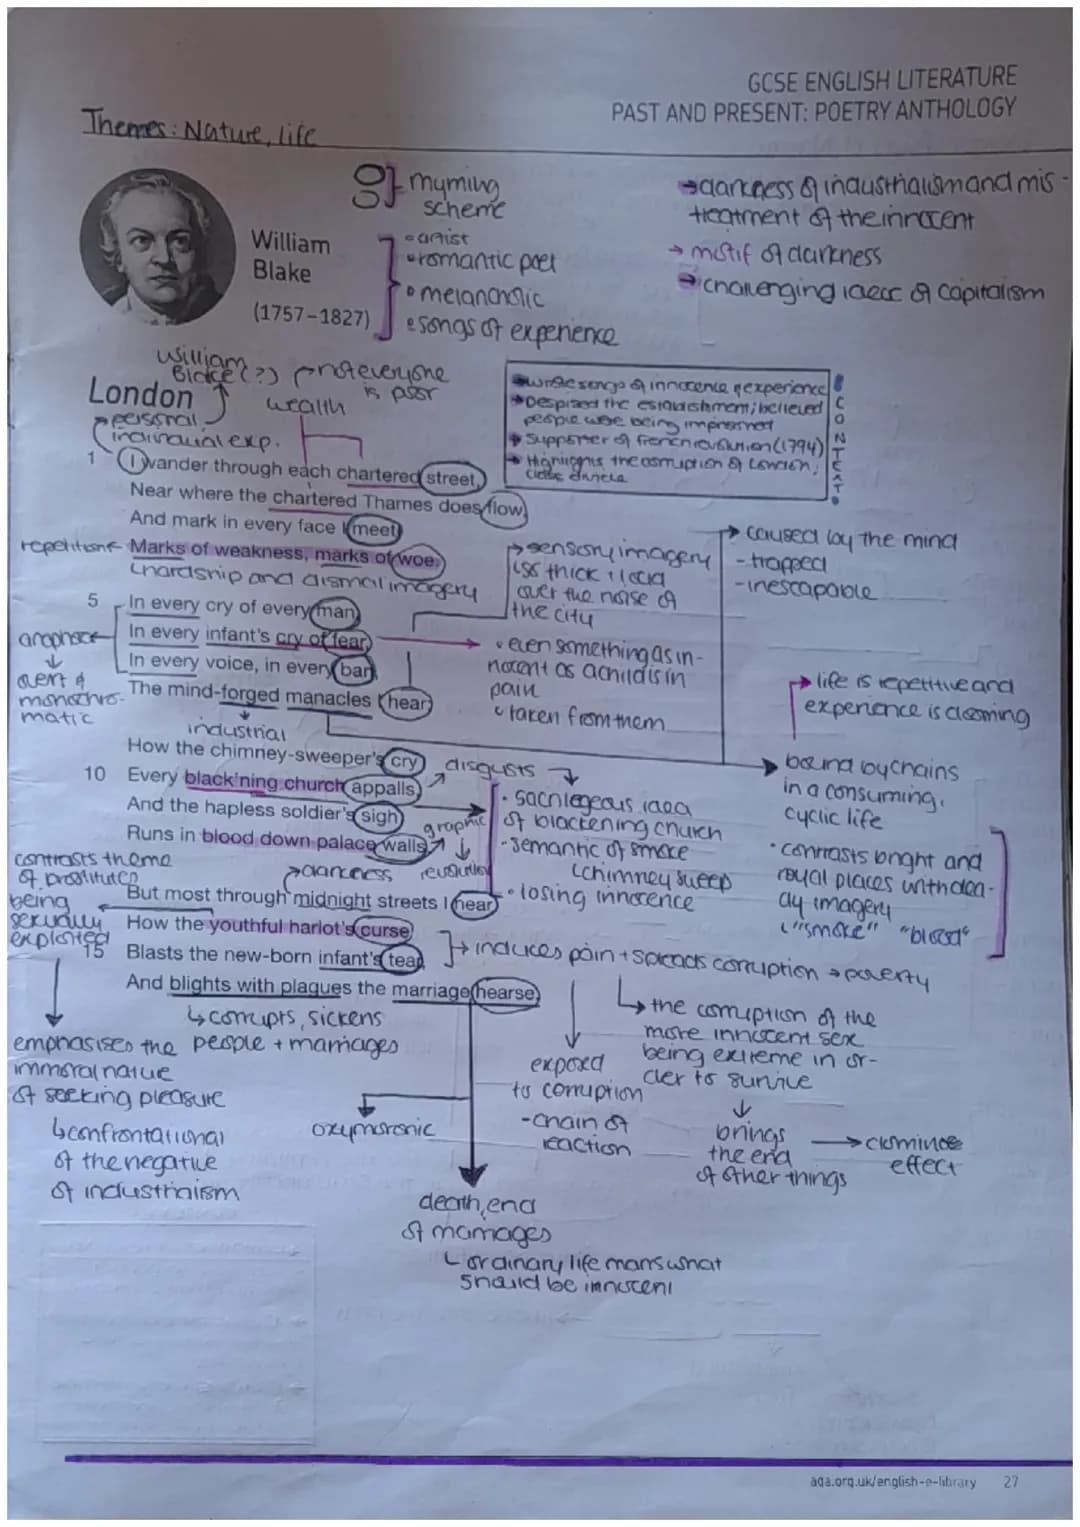 GCSE ENGLISH LITERATURE
PAST AND PRESENT: POETRY ANTHOLOGY
Themes: Nature, life
rhyming
scheme
→darkness of industrialism and mis-
treatment of the innocent
→ motif of darkness
→ challenging ideas of capitalism
William
Blake
(1757–1827)
•artist
•romantic poet
•melancholic
•songs of experience
William
Blake(?)
not everyone
is poor
wealth
London
personal
individual exp.
→wrote songs of innocence & experience
→Despised the establishment; believed
people were being imprisoned
→ Supporter of french revolution (1794)
→ Highlights the corruption of London,
class divide
CONTEXT
1 I wander through each chartered street,
Near where the chartered Thames does flow,
And mark in every face I meet
repetition← Marks of weakness, marks of woe.
hardship and dismal imagery
→sensory imagery
is thick & loud
over the noise of
the city
→ caused by the mind
-trapped
-inescapable
5 In every cry of every man,
In every infant's cry of fear,
In every voice, in every bar,
The mind-forged manacles I hear
anaphora
monochro-
matic
• even something as in-
nocent as a child is in
pain
taken from them
→ life is repetitive and
experience is
industrial
How the chimney-sweeper's cry
10 Every black'ning church appalls,
And the hapless soldier's sigh
Runs in blood down palace walls.
disgusts
graphic
revolution
• sacrilegeous idea
of blackening church
- semantic of smoke
chimney sweep
• losing innocence
bound by chains
in a consuming,
cyclic life
• contrasts bright and
royal places with
imagery
"smoke" "blood"
contrasts theme
of prostitutes
being
sexually
exploited
→darkness
But most through midnight streets I hear
How the youthful harlot's curse
15 Blasts the new-born infant's tear,
And blights with plagues the marriage hearse.
→ induces pain + spreads corruption → poverty
↳corrupts, sickens
people + marriages
emphasises the
immoral nature
of seeking pleasure
↳confrontational
of the negative
of industrialism
oxymoronic
exposed
to corruption
-chain of
reaction
↳ the corruption of the
more innocent sex
being extreme in or-
der to survive
brings
the end
of other things
→ dominoe
effect
death, end
of marriages
ordinary life what
should be innocent
aqa.org.uk/english-e-library 27